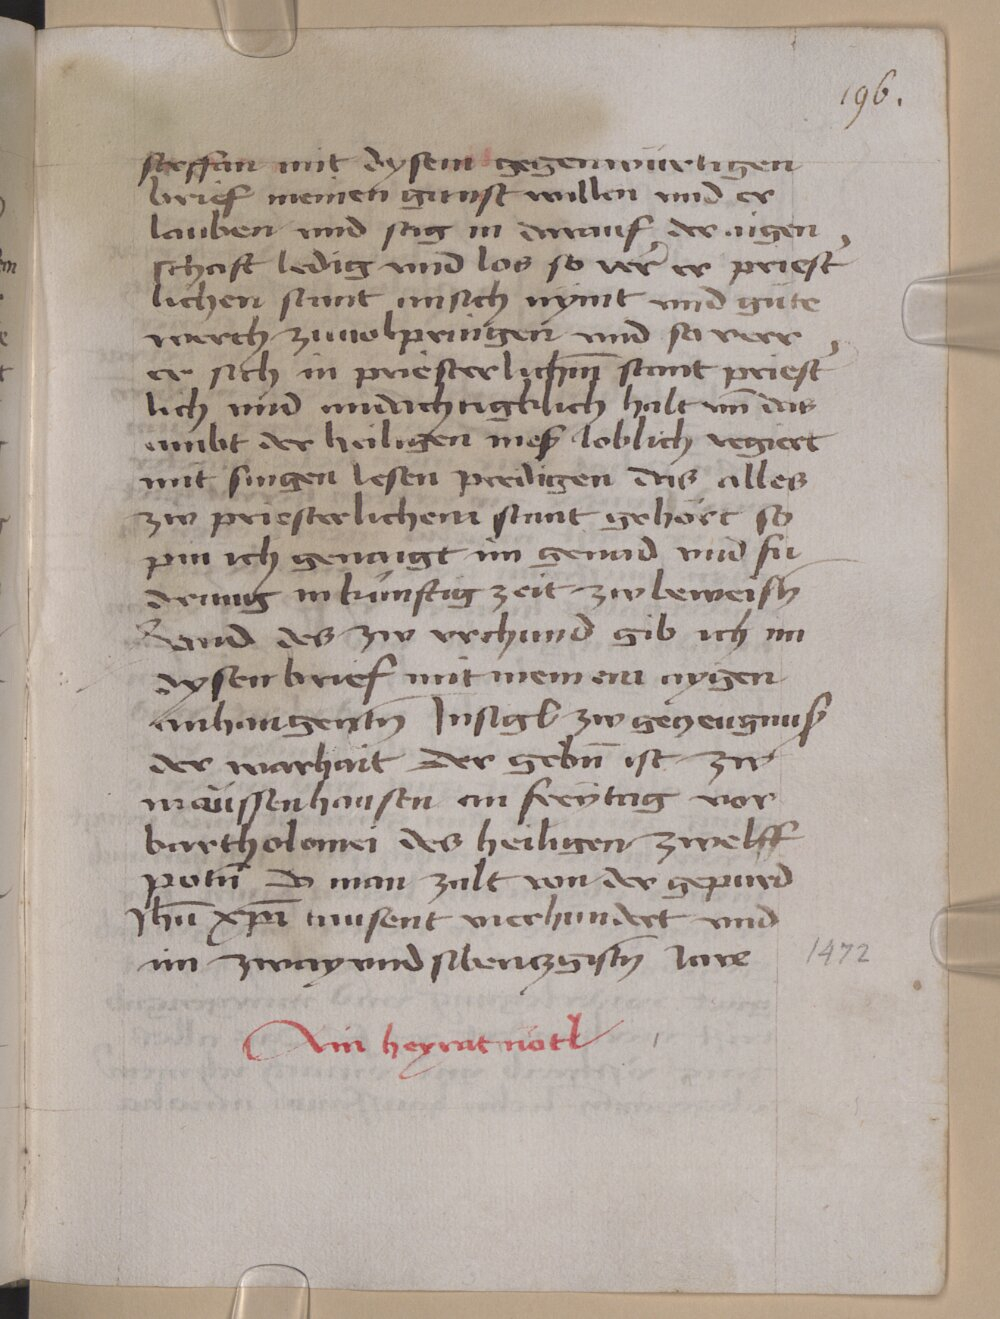 196.
steffan mit dysem gegenwürtigen
brief meinen gunst willen und er
lauben und sag in darauf der aigen
schaft ledig und los so verr er priest
lichen stant ansich nymt und güte
werch zuuolpringen und so verr
er sich in priesterlichem stant priest
lich und andachtigklich halt un das
ambt der heiligen mess loblich regiert
mit singen lesen predigen das alles
zw priesterlichem stant gehört so
pin ich genaigt im genad und fu
drung in künftig zeit zw beweisn
Vand des zw vrchund gib ich im
dysen brief mit meinem aygen
anhangenten Insigl zw gezeugnuss
der warhait Der gebn ist zw
mäussenhausen am freytag vor
bartholomei des heiligen zwelff
potn Do man zalt von der gepurd
Jhu xpi tausent vierhundert und
im zway und sibenzgistn Jare
1472
Ain heyrat nötl